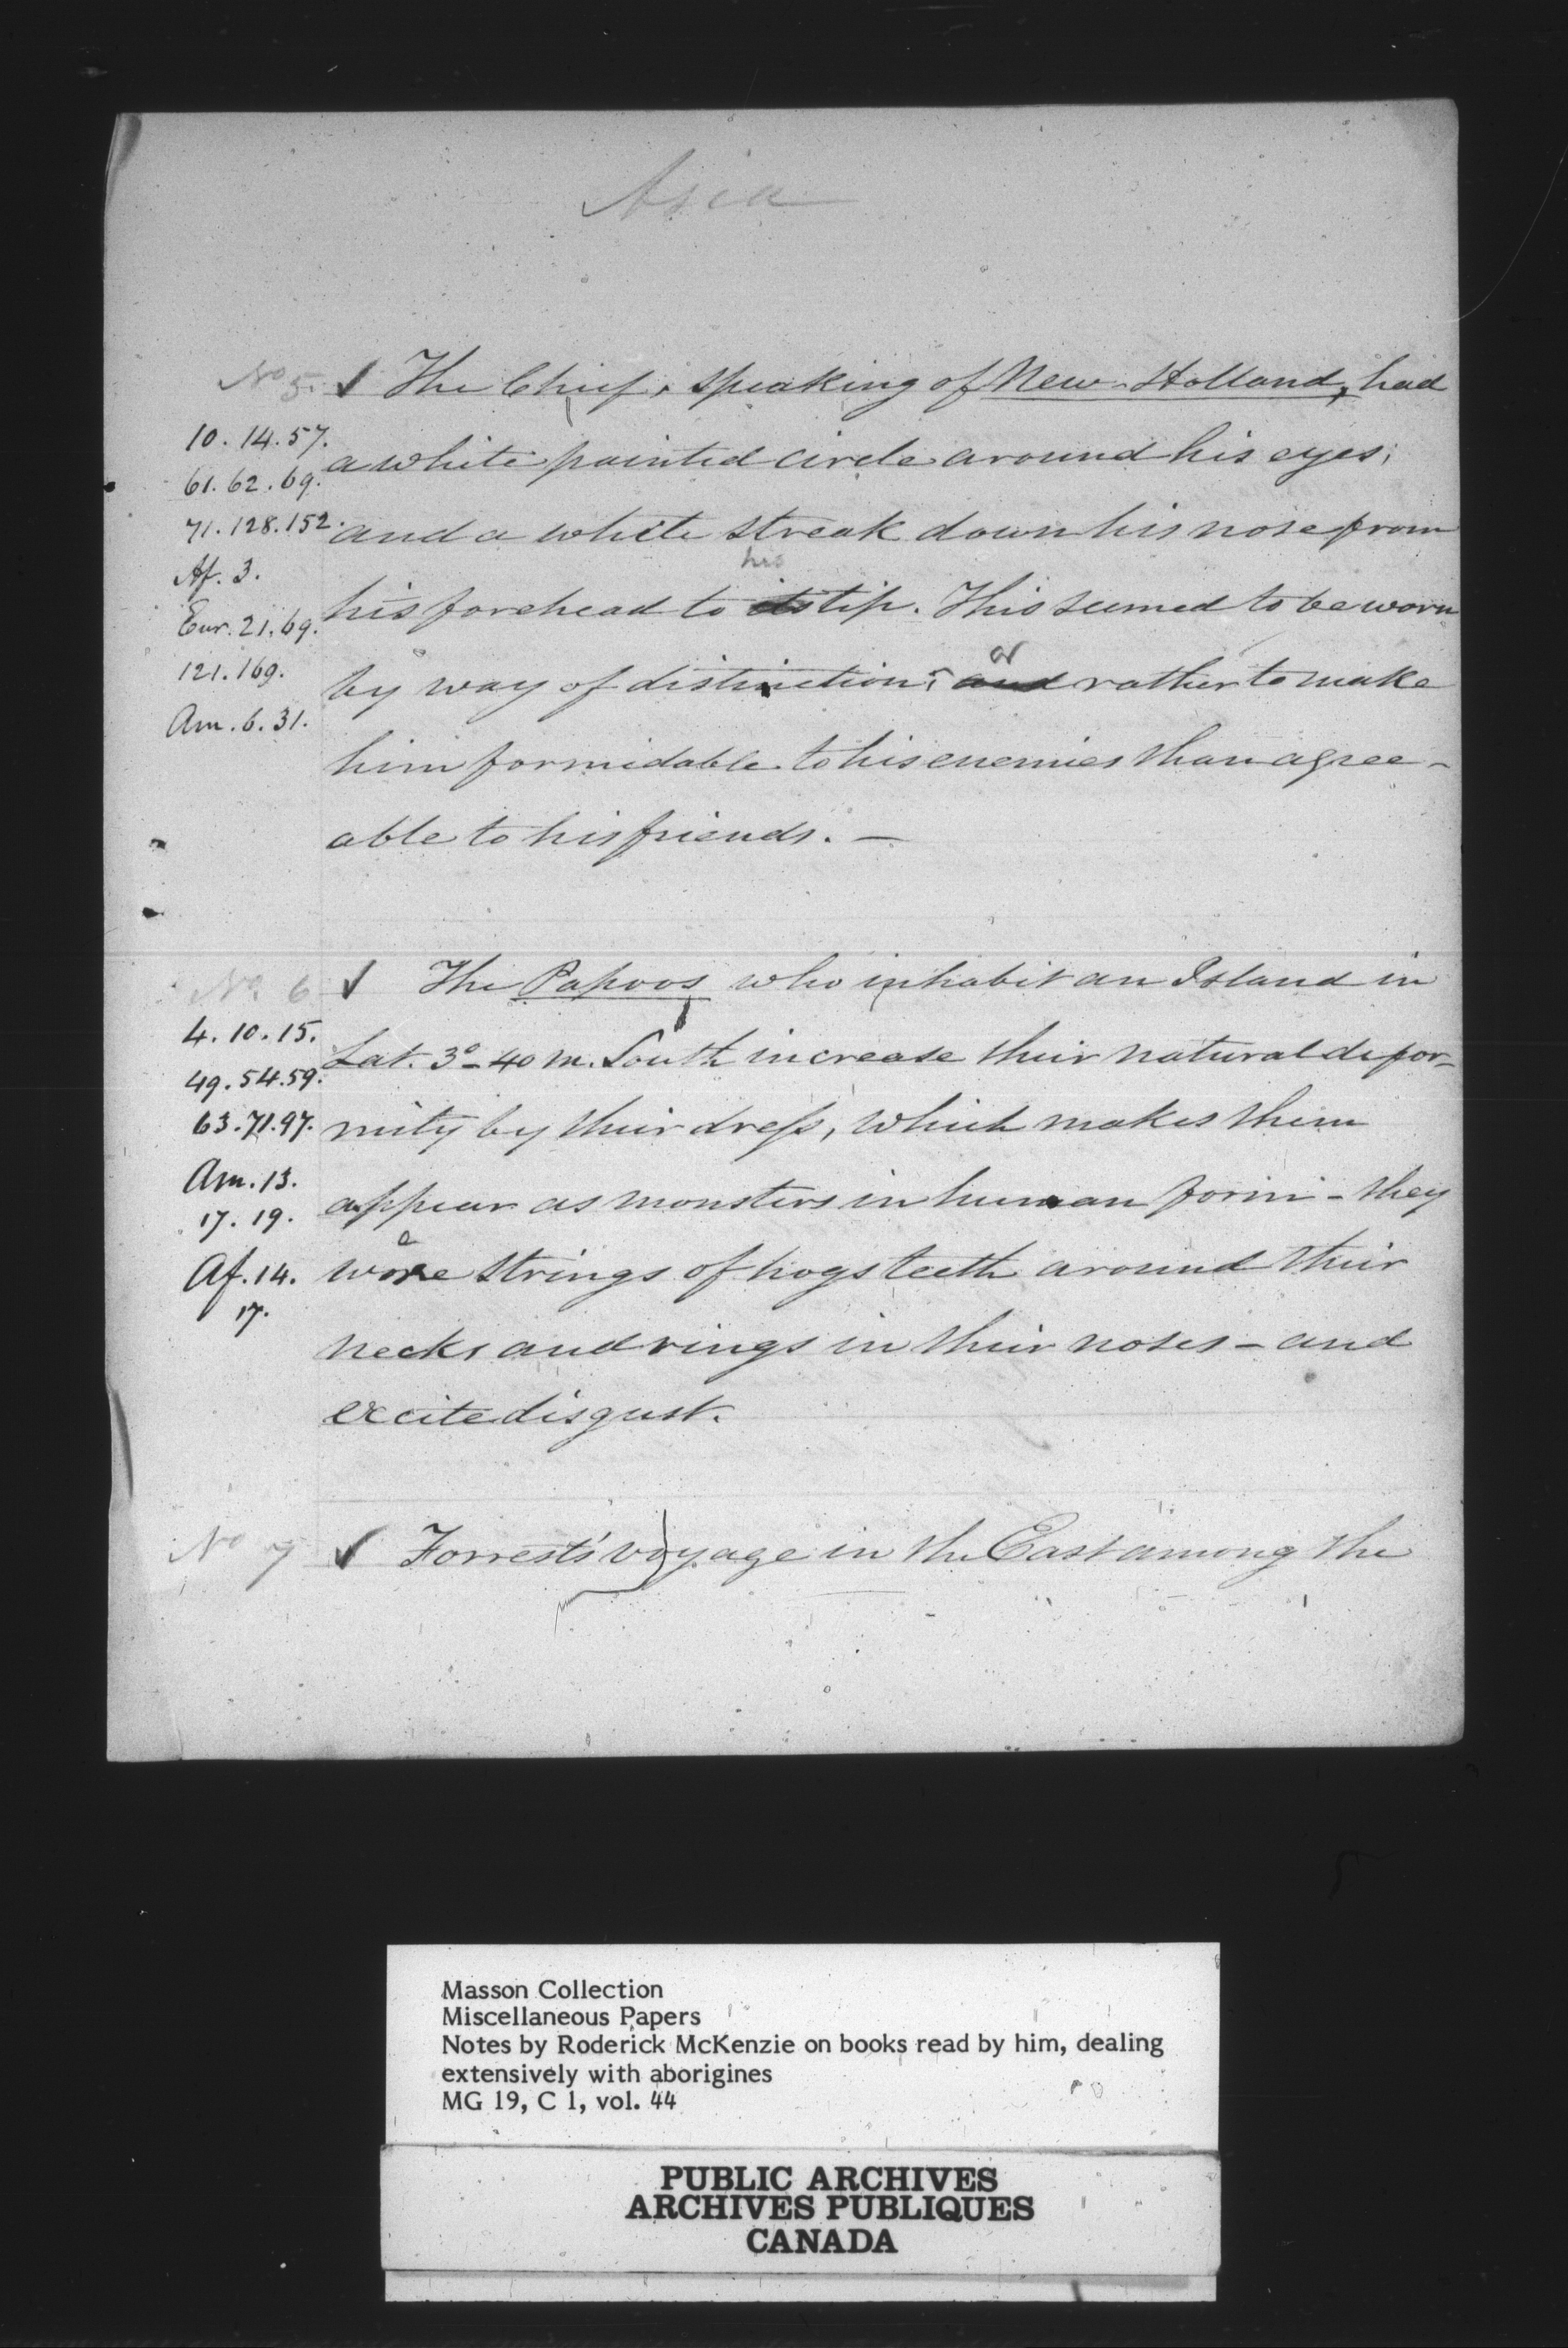 Asia
No 5. ✓ The Chief, speaking of New Holland, had
10. 14. 57.
a white painted circle around his eyes;
61. 62. 69.
71. 128. 152.
and a white streak down his nose from
his
Af. 3.
his forehead to its tip. This seemed to be worn
Eur. 21. 69.
or
121. 169.
by way of distinction; and rather to make
Am. 6. 31.
him formidable to his enemies than agree-
able to his friends. —
No. 6 ✓ The Papoos who inhabit an Island in
4. 10. 15.
Lat. 3° - 40 m. South increase their natural defor-
49. 54. 59.
63. 71. 97.
mity by their dress, which makes them
Am. 13.
appear as monsters in human form - they
17. 19.
Af. 14.
wore strings of hogs teeth around their
17.
necks and rings in their noses - and
excite disgust.
No 7 ✓ Forrest's voyage in the East among the
Masson Collection
Miscellaneous Papers
Notes by Roderick McKenzie on books read by him, dealing
extensively with aborigines
MG 19, C 1, vol. 44
PUBLIC ARCHIVES
ARCHIVES PUBLIQUES
CANADA